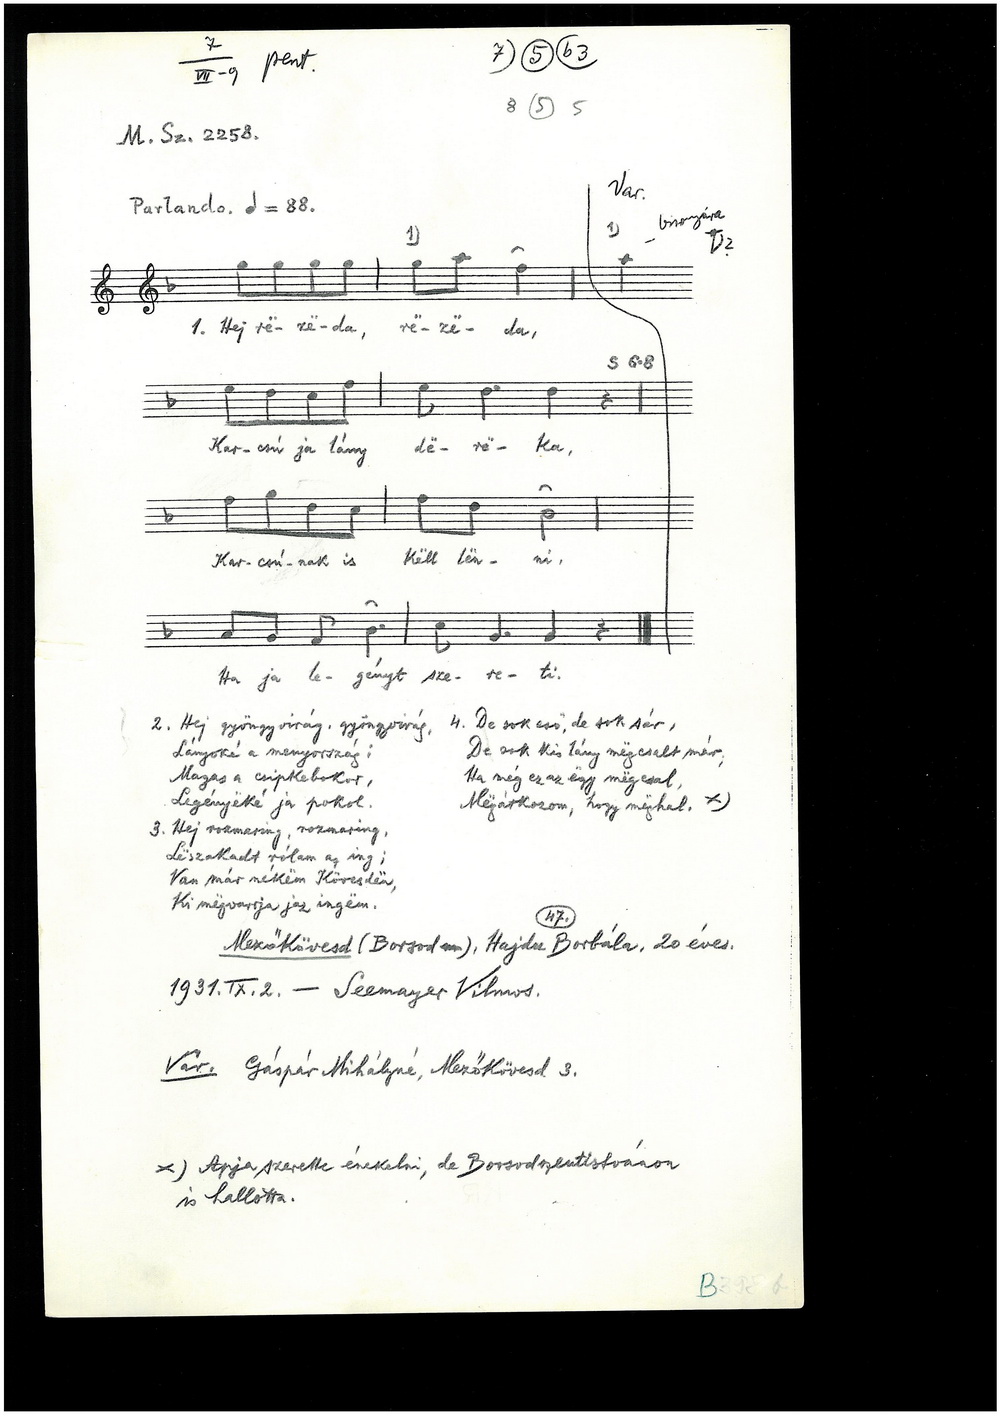 7 / VII-9 pent. 7) 5 b3
8 5 5
M. Sz. 2258.
Var.
Parlando. ♩ = 88.
1) 1) bizonyára
1. Hej rë- zë-da, rë-zë- da,
S 6-8
Kar-csú ja lány dë- rë- ka,
Kar-csú-nak is këll lën- ni,
Ha ja le- gényt sze- re- ti.
2. Hej gyöngyvirág, gyöngyvirág,
Lányoké a menyország;
Magas a csipkebokor,
Legényëké ja pokol.
3. Hej rozmaring, rozmaring,
Lëszakadt rólam az ing;
Van már nékëm Kövesdën,
Ki mëgvarrja jaz ingëm.
4. De sok eső, de sok sár,
De sok kis lány mëgcsalt már,
Ha még ez az ëgy mëgcsal,
Mëgátkozom, hogy mëghal. x)
47.
Mezőkövesd (Borsod m), Hajdu Borbála, 20 éves.
1931. IX. 2. — Seemayer Vilmos.
Var. Gáspár Mihályné, Mezőkövesd 3.
x) Apja szerette énekelni, de Borsodszentistvánon
is hallotta.
B